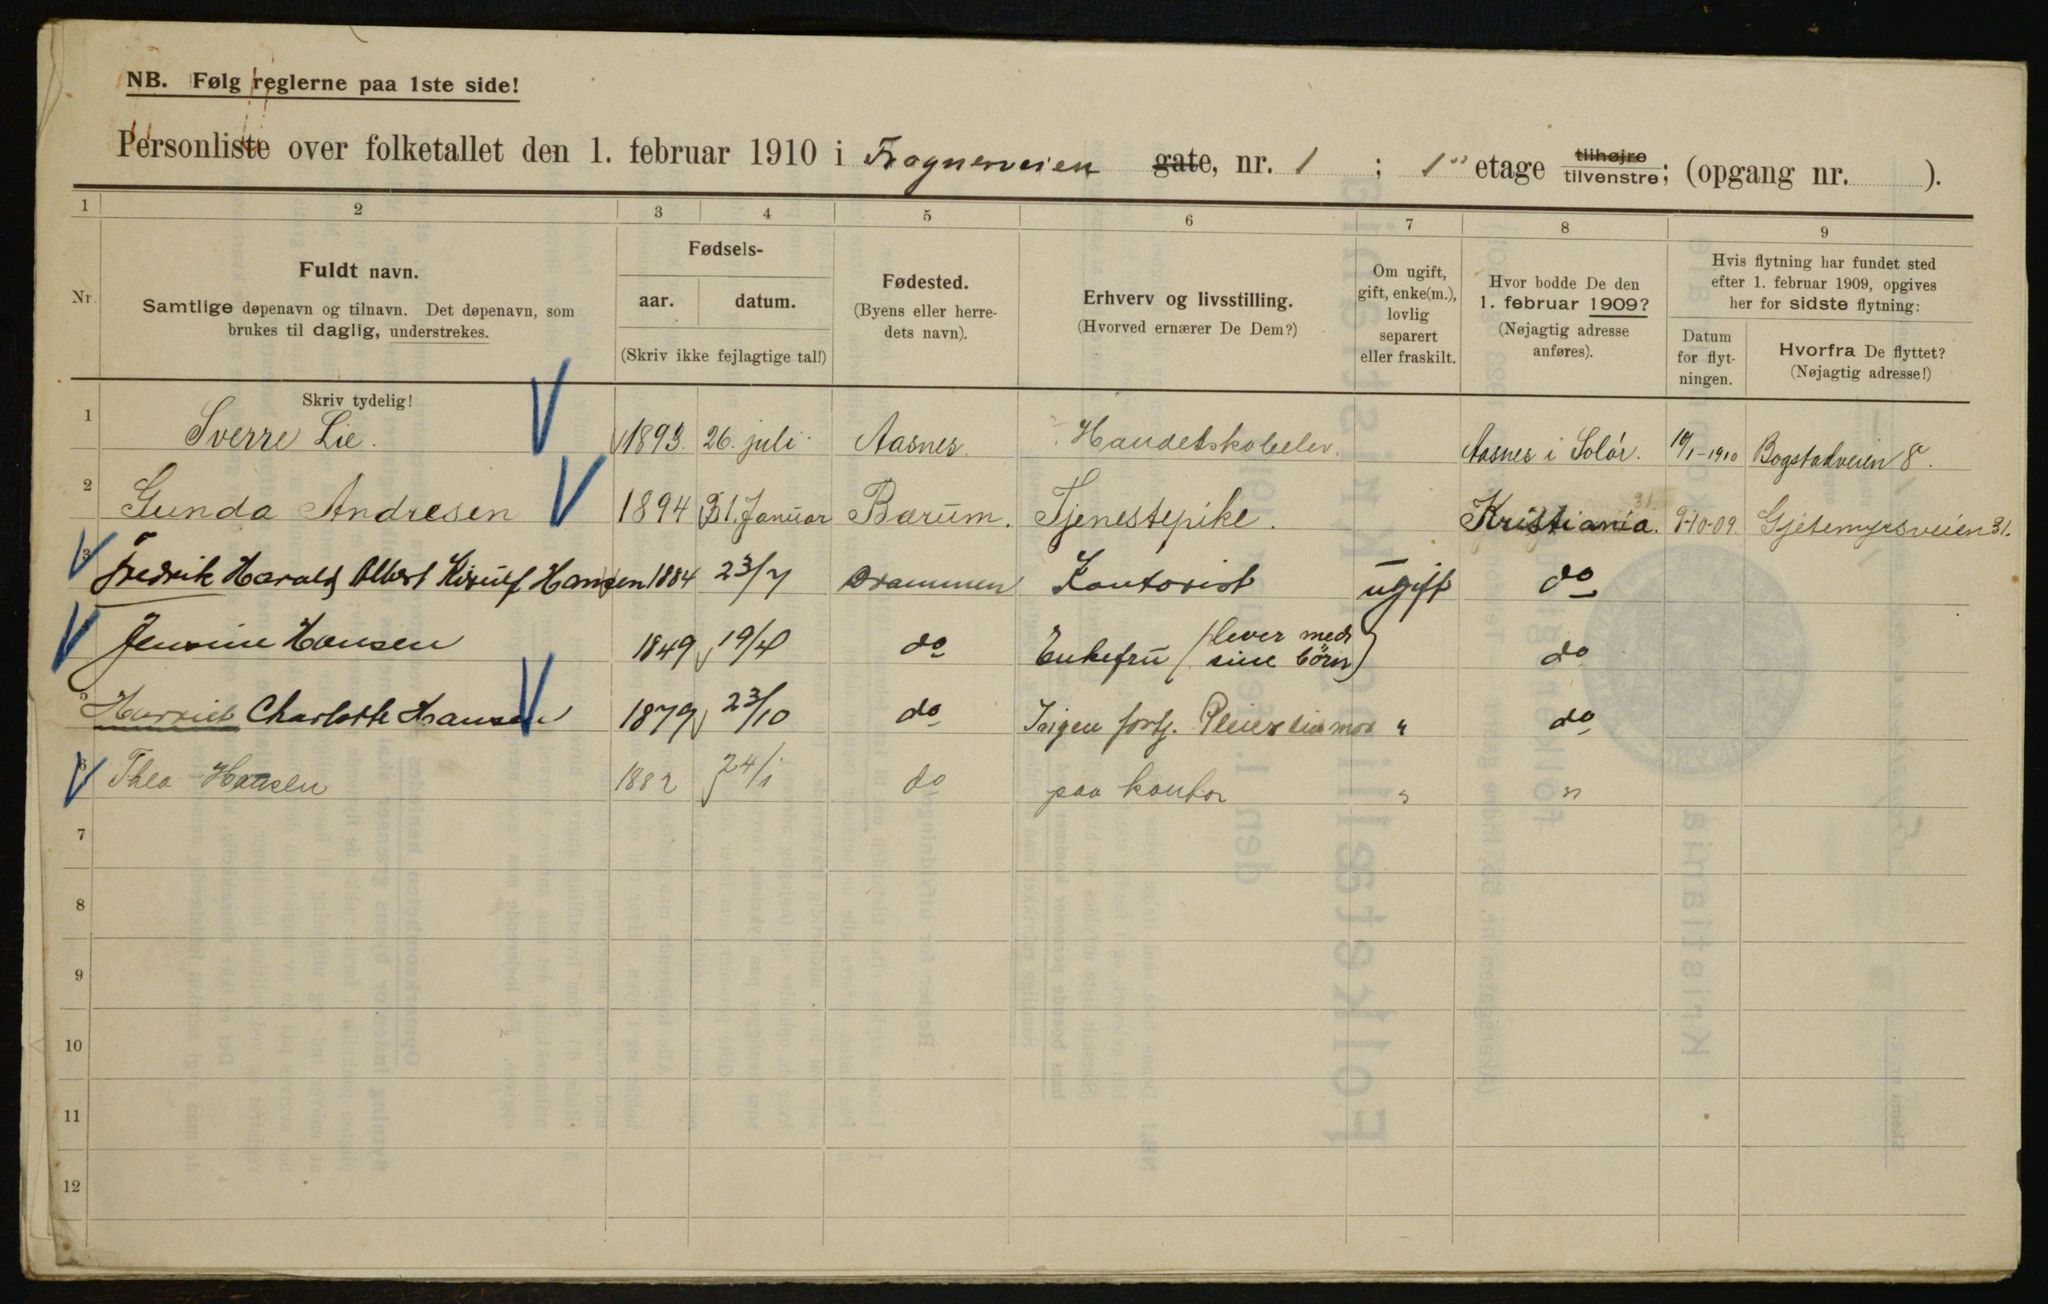 NB. Følg reglerne paa 1ste side!
Personliste over folketallet den 1. februar 1910 i Frognerveien gate, nr. 1 ; 1" etage tilhøjre tilvenstre; (opgang nr. ).
1 2 3 4 5 6 7 8 9
Nr.
Fuldt navn.
Samtlige døpenavn og tilnavn. Det døpenavn, som
brukes til daglig, understrekes.
Skriv tydelig!
Fødsels-
aar. datum.
(Skriv ikke fejlagtige tal!)
Fødested.
(Byens eller herre-
dets navn).
Erhverv og livsstilling.
(Hvorved ernærer De Dem?)
Om ugift,
gift, enke(m.),
lovlig
separert
eller fraskilt.
Hvor bodde De den
1. februar 1909?
(Nøjagtig adresse
anføres).
Hvis flytning har fundet sted
efter 1. februar 1909, opgives
her for sidste flytning:
Datum
for flyt-
ningen.
Hvorfra De flyttet?
(Nøjagtig adresse!)
1 Sverre Lie. 1893. 26. juli Aasnes. Handelskoleelev. Aasnes i Solør. 10/1-1910 Bogstadveien 8.
2 Gunda Andresen 1894 31. Januar Bærum. Tjenestepike. Kristiania. 9-10-09. Gjetemyrsveien 31.
3 Fredrik Harald Albert Hansen 1884 23/7 Drammen Kontorist ugift do
Jensine Hansen 1849 19/4 do Enkefru (lever med sine börn) do
5 Harriet Charlotte Hansen 1879 23/10 do Ingen fortj. Pleier sin mor " do
6 Thea Hansen 1882 24/1 do paa kontor " "
7
8
9
10
11
12